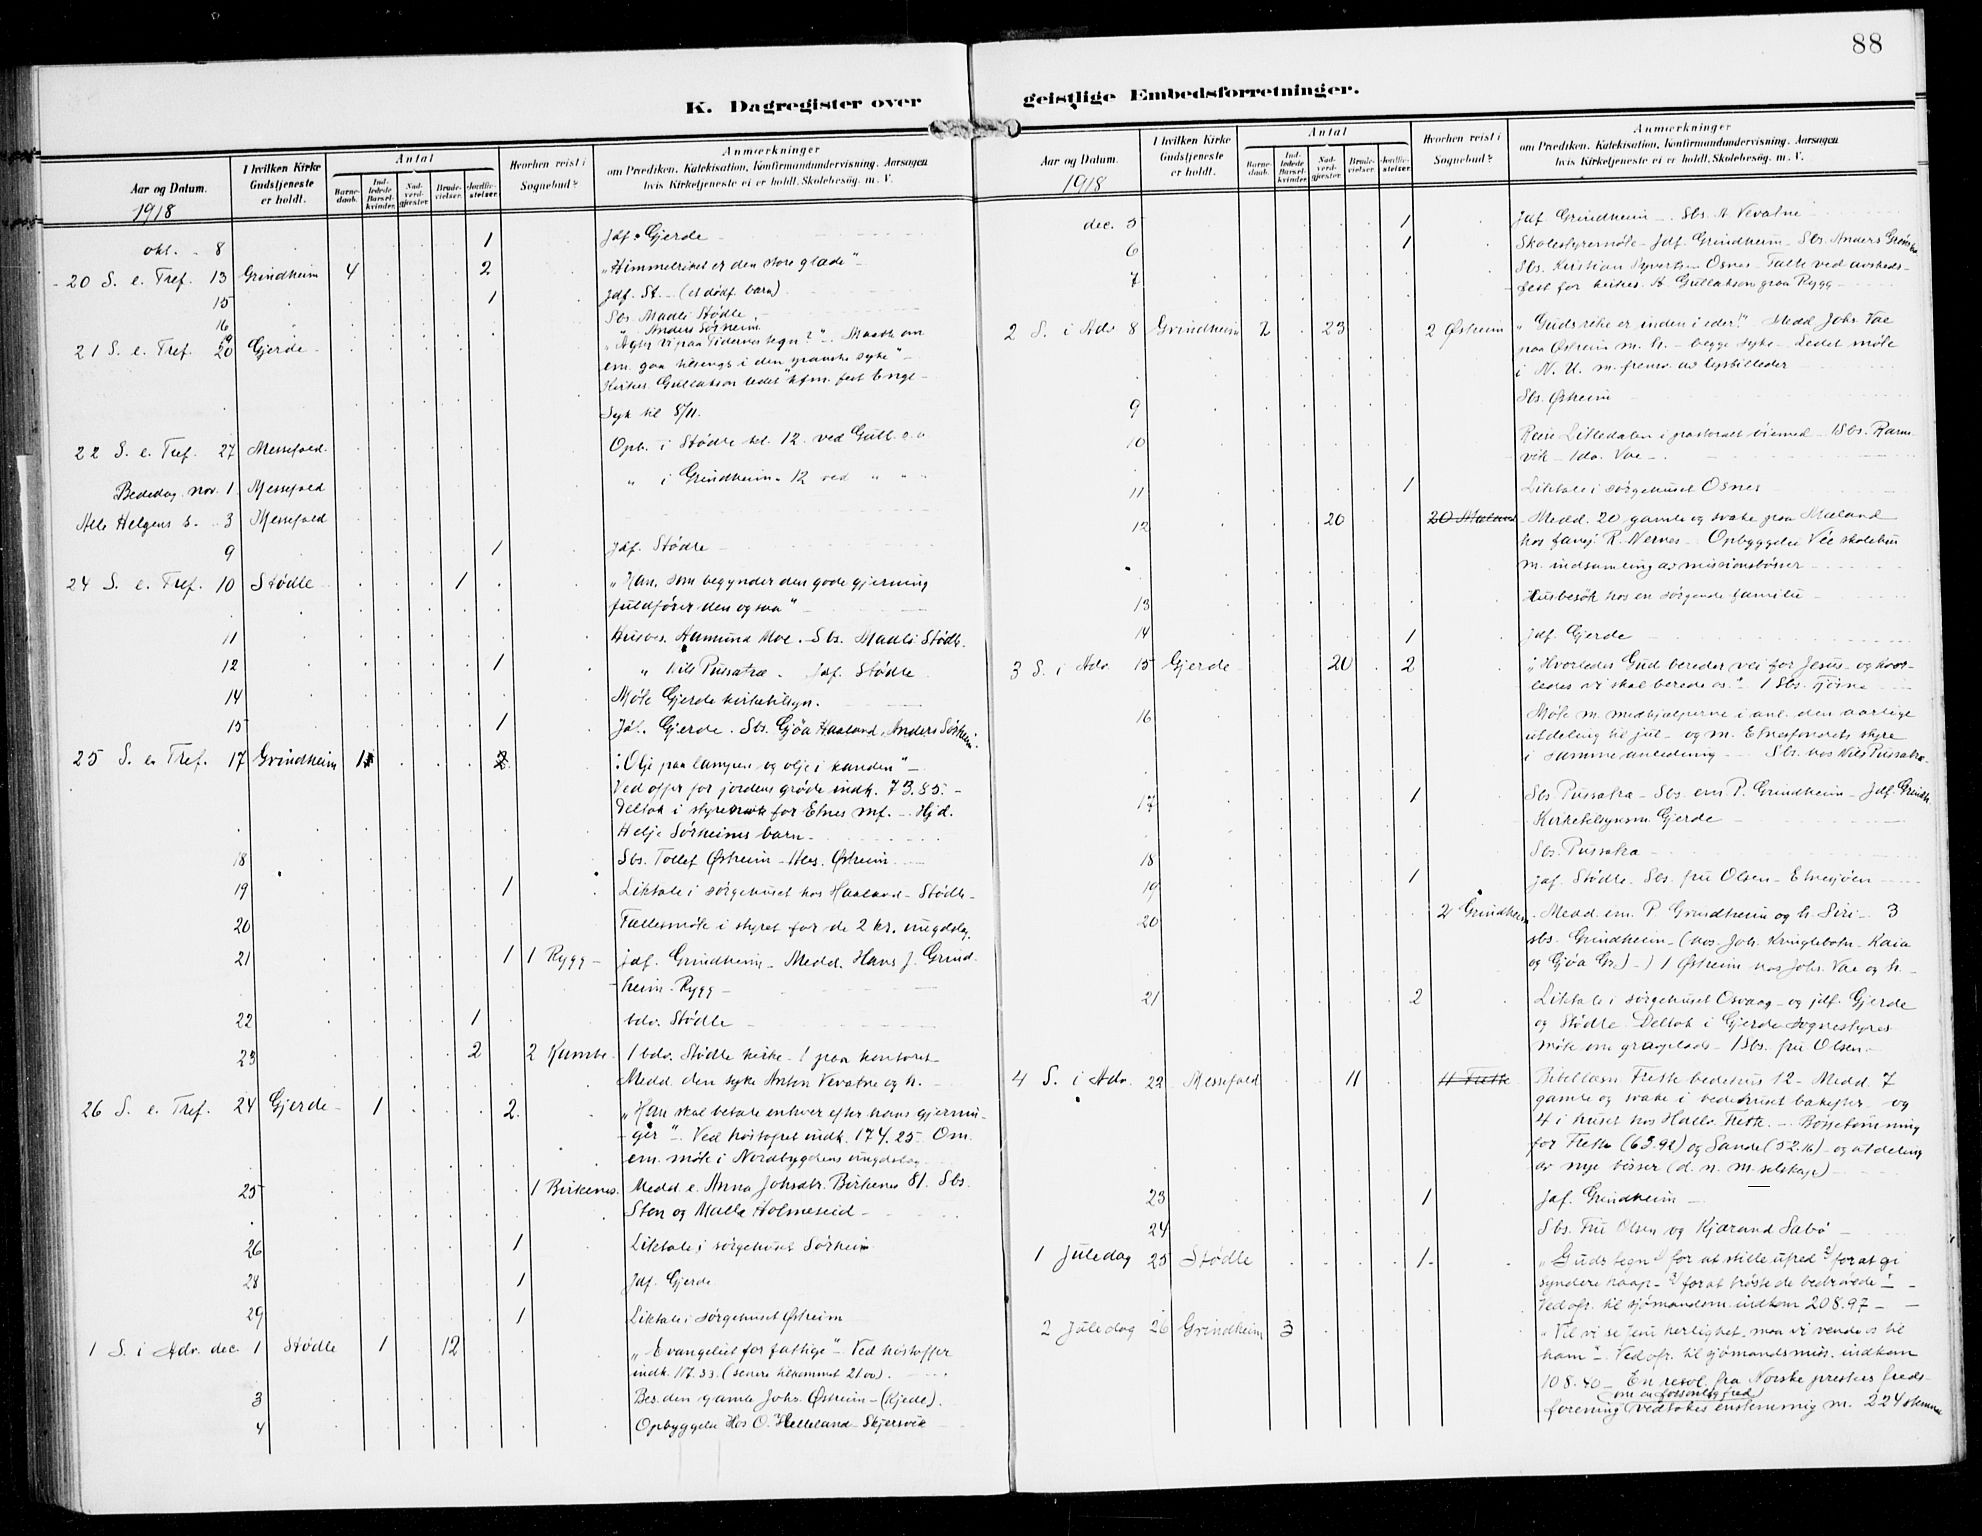 88
K. Dagregister over geistlige Embedsforretninger.
Aar og Datum.
1918
I hvilken Kirke Gudstjeneste er holdt.
Antal
Barnedaab.
Indledede Barselkvinder.
Nadverdgjæster.
Brudevielser.
Jordfæstelser.
Hvorhen reist i Sognebud?
Anmærkninger
om Prædiken. Katekisation, Konfirmandundervisning. Aarsagen
hvis Kirketjeneste ei er holdt. Skolebesøg. m. V.
okt. 8 1 Jdf. Gjerde
20 S. e. Tref. 13 Grindheim 4 2 "Himmelriket er den store glæde"
15 1 Jdf. St. - (et dødf. barn)
16 Sbs. Madli Stødle
19 " Anders Sørheim
21 S. e. Tref. 20 Gjerde "Agter vi paa Tidernes tegn?" - Maatte om
em. gaa tilsengs i den spanske syke" -
Kirkes. Gullakson ledet kfm. fest Enge -
Syk til 8/11.
22 S. e. Tref. 27 Messefald. Opb. i Stødle kl. 12 ved Gull. o. a
Bededag. nov. 1 Messefald " i Grindheim " 12 ved " " "
Alle Helgens s. 3 Messefald
9 1 Jdf. Stødle
24 S. e. Tref. 10 Stødle 1 "Han, som begynder den gode gjerning
fuldfører den ogsaa" -
11 Husbes. Aamund Moe. Sbs. Madli Stødle.
12 1 " Nils Pussatræ. Jdf. Stødle
14 Møte Gjerde kirketilsyn.
15 1 Jdf. Gjerde. Sbs. Gjøa Haaland, Anders Sørheim.
25 S. e. Tref. 17 Grindheim 1 2 "Olje paa lampen og olje i kanden" -
Ved offer for jordens grøde indk. 73.85. -
Deltok i styremøte for Etnes mf. - Hjd.
Helje Sørheims barn.
18 Sbs. Tollef Østheim - Hbs. Østheim
19 1 Liktale i sørgehuset hos Haaland - Stødle -
20 Fællesmøte i styret for de 2 kr. ungdslag.
21 1 1 Rygg - Jdf. Grindheim - Medd. Hans J. Grind-
heim - Rygg -
22 1 bdv. Stødle -
23 2 2 Kambe. 1 bdv. Stødle kirke - 1 paa kontoret -
Medd. den syke Anton Vevatne og h. -
26 S. e. Tref. 24 Gjerde - 1 2. "Han skal betale enhver efter hans gjernin-
ger" - Ved høstofret indk. 174.25. Om
em. møte i Nordbygdens ungdslag -
25 1 Birkenes. Medd. e. Anna Johsdtr. Birkenes 81. Sbs.
Sten og Malla Holmeseid -
26 1 Liktale i sørgehuset Sørheim
28 1 Jdf. Gjerde.
29 1 Liktale i sørgehuset Østheim
1 S. i Adv. dec. 1 Stødle 1 12 "Evangeliet for fattige" - Ved høstoffer
indk. 117.33. (senere tilkommet 21.00).
3 Bes. den gamle Johs. Østheim - (Kjede).
4 Opbyggelse Hos O. Helleland - Skjersvik -
Aar og Datum.
1918
I hvilken Kirke Gudstjeneste er holdt.
Antal
Barnedaab.
Indledede Barselkvinder.
Nadverdgjæster.
Brudevielser.
Jordfæstelser.
Hvorhen reist i Sognebud?
Anmærkninger
om Prædiken. Katekisation, Konfirmandundervisning. Aarsagen
hvis Kirketjeneste ei er holdt. Skolebesøg. m. V.
dec. 5 1 Jdf. Grindheim - Sbs. A. Vevatne
6 1 Skolestyremøte - Jdf. Grindheim - Sbs. Anders
7 Sbs. Kristian Syvertsen Osnes - Talte ved avskeds-
fest for kirkes. A. Gullakson paa Rygg -
2 S. i Adv 8 Grindheim 2 23 2 Østheim "Guds rike er inden i eder." - Medd. Johs. Vae
paa Østheim m. h. - begge syke - Ledet møte
i N. U. m. fremv. av lysbilleder
9 Sbs. Østheim -
10 Reise Litledalen i pastoralt øiemed - 1 Sbs. Ramsvik - 1 do. Vae -
11 1 Liktale i sørgehuset Osnes
12 20 20 Mæland Medd. 20 gamle og svake paa Mæland
hos fangf. R. Nernes - Opbyggelse Vee skolehus
m. indsamling av missionsbøsser
13 Husbesøk hos en sørgende familie -
14 1 Jdf. Gjerde
3 S. i Adv. 15 Gjerde 20 2 "Hvorledes Gud bereder vei for Jesus - og hvor-
ledes vi skal berede os." - 1 Sbs. Tjørne -
16 Møte m. medhjælperne i anl. den aarlige
utdeling til jul - og m. Etnesfondets styre
i samme anledning - Sbs. hos Nils Pussatræ.
17 1 Sbs. Pussatræ - Sbs. em. P. Grindheim - Jdf. Grindh
Kirketilsynsm. Gjerde -
18 Sbs. Pussatræ -
19 1 Jdf. Stødle. Sbs. fru Olsen - Etnesjøen
20 2 Grindheim. Medd. em. P. Grindheim og h. Siri - 3
sbs. Grindheim - (hos. Joh. Kringlebotn - Kaia
og Gjøa Gr.) - 1 Østheim hos Johs. Vae og h. -
21 2 Liktale i sørgehuset Osvaag - og jdf. Gjerde
og Stødle. Deltok i Gjerde sognestyres
møte om gravplads - 1 Sbs. fru Olsen -
4 S. i Adv. 22 Messefald 11 11 Frette Bibellæsn. Frette bedehus 12 - Medd. 7
gamle og svake i bedehuset bakefter og
4 i huset hos Hallv. Frette. - Bøssetømning
for Frette (63.92) og Sande (52.16) - og utdeling
av nye bøsser (d. n. m. selskap)
23 1 Jdf. Grindheim -
24 Sbs. Fru Olsen og Kjærand Sæbø -
1 Juledag 25 Stødle 1 - "Guds tegn 1) for at stille ufred 2) for at gi
syndere haap - 3) for at trøste de bedrøvede" -
Ved ofr. til sjømandsm. indkom 208.97 -
2 Juledag 26 Grindheim 3 "Vil vi se Jesu herlighet, maa vi vende os til
ham" - Ved ofr. til sjømandsmiss. indkom
108.40 - En resol. fra Norske presters freds-
(om en forsonlig fred)
forening vedtokes enstemmig m. 224 stemmer